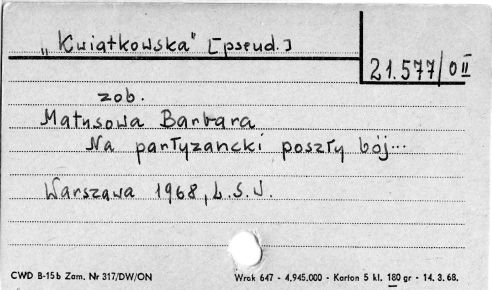 „Kwiatkowska" [pseud.]
21.577/0II
zob.
Matusowa Barbara
Na partyzancki poszły bój...
Warszawa 1968, L.S.W.
CWD B-15b Zam. Nr 317/DW/ON
Wrak 647 - 4.945.000 - Karton 5 kl. 180 gr - 14. 3. 68.